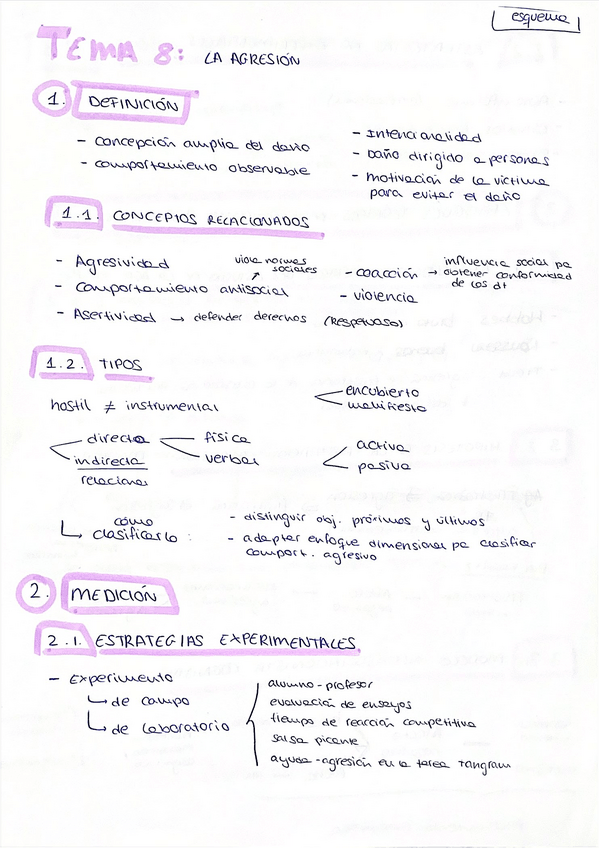 esquema
TEMA 8: LA AGRESIÓN
1. DEFINICIÓN
- concepción amplia del daño
- comportamiento observable
- Intencionalidad
- Daño dirigido a personas
- motivación de la víctima
para evitar el daño
1.1. CONCEPTOS RELACIONADOS
- Agresividad
viola normas
sociales
- comportamiento antisocial
- Asertividad → defender derechos (RESPETUOSO)
- coacción → influencia social pa
obtener conformidad
de los dt
- violencia
1.2. TIPOS
hostil ≠ instrumental
encubierto
manifiesto
directa
indirecta
relacional
física
verbal
activa
pasiva
cómo
clasificarlo:
- distinguir obj. próximos y últimos
- adaptar enfoque dimensional pa clasificar
comport. agresivo
2. MEDICIÓN
2.1. ESTRATEGIAS EXPERIMENTALES
- Experimento
de campo
de laboratorio
alumno-profesor
evaluación de ensayos
tiempo de reacción competitiva
salsa picante
ayuda-agresión en la tarea Tangram